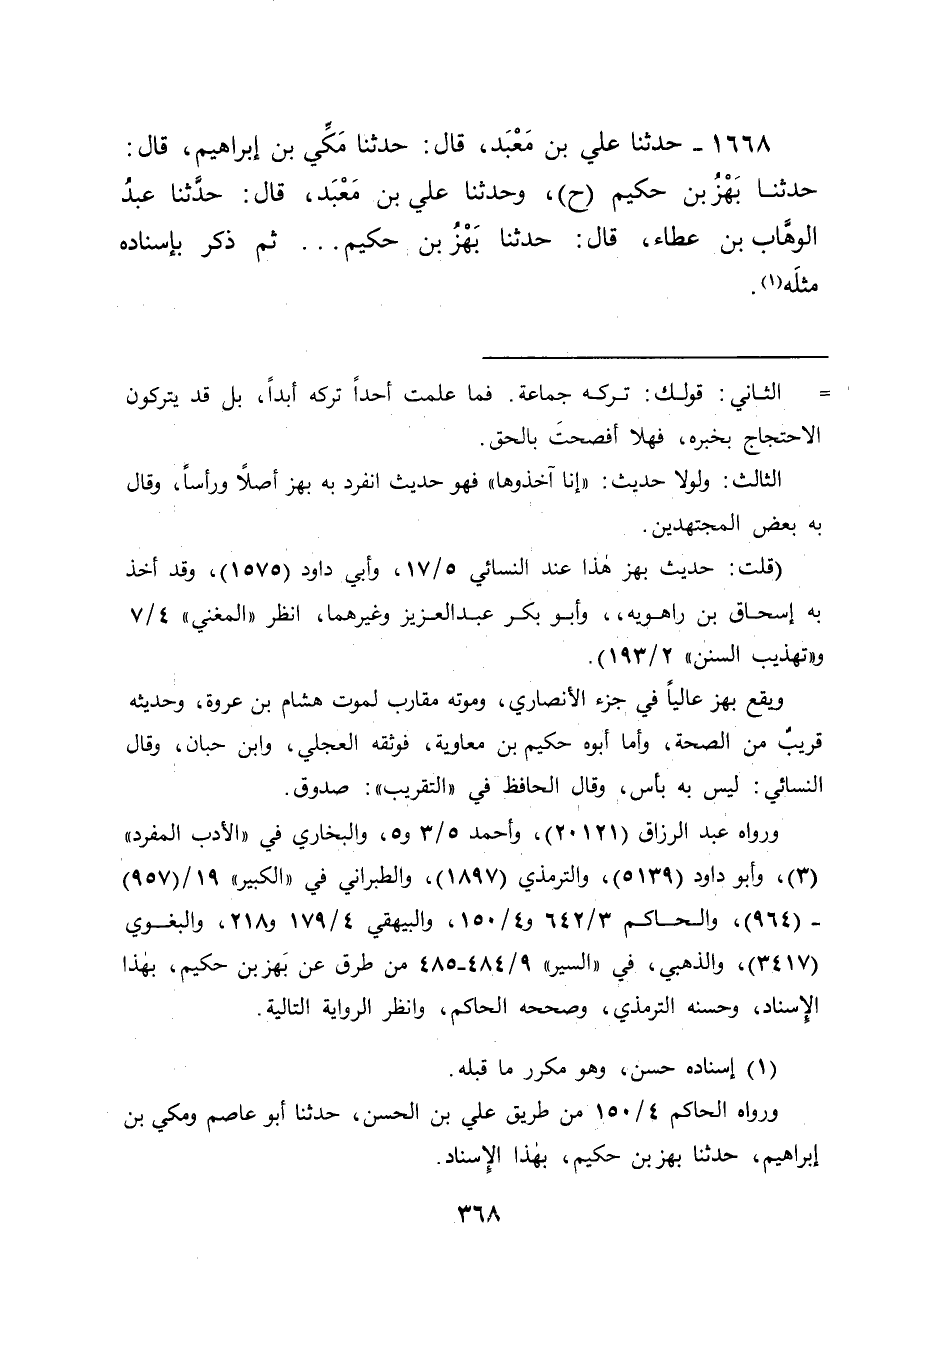 ١٦٦٨ ـ حدثنا علي بن مَعْبَد، قال: حدثنا مَكِّي بن إبراهيم، قال:
حدثنا بَهْزُ بن حكيم (ح)، وحدثنا علي بن مَعْبَد، قال: حدَّثنا عبدُ
الوهَّاب بن عطاء، قال: حدثنا بَهْزُ بن حكيم... ثم ذكر بإسناده
مثلَه(١).
= الثاني: قولك: تركه جماعة. فما علمت أحداً تركه أبداً، بل قد يتركون
الاحتجاج بخبره، فهلا أفصحتَ بالحق.
الثالث: ولولا حديث: «إنا آخذوها» فهو حديث انفرد به بهز أصلًا ورأساً، وقال
به بعض المجتهدين.
(قلت: حديث بهز هٰذا عند النسائي ١٧/٥، وأبي داود (١٥٧٥)، وقد أخذ
به إسحاق بن راهويه،، وأبو بكر عبدالعزيز وغيرهما، انظر «المغني» ٧/٤
و«تهذيب السنن» ١٩٣/٢).
ويقع بهز عالياً في جزء الأنصاري، وموته مقارب لموت هشام بن عروة، وحديثه
قريبٌ من الصحة، وأما أبوه حكيم بن معاوية، فوثقه العجلي، وابن حبان، وقال
النسائي: ليس به بأس، وقال الحافظ في «التقريب»: صدوق.
ورواه عبد الرزاق (٢٠١٢١)، وأحمد ٣/٥ و٥، والبخاري في «الأدب المفرد»
(٣)، وأبو داود (٥١٣٩)، والترمذي (١٨٩٧)، والطبراني في «الكبير» ١٩/(٩٥٧)
ـ (٩٦٤)، والحاكم ٦٤٢/٣ و١٥٠/٤، والبيهقي ١٧٩/٤ و٢١٨، والبغوي
(٣٤١٧)، والذهبي، في «السير» ٤٨٤/٩ـ٤٨٥ من طرق عن بَهز بن حكيم، بهٰذا
الإِسناد، وحسنه الترمذي، وصححه الحاكم، وانظر الرواية التالية.
(١) إسناده حسن، وهو مكرر ما قبله.
ورواه الحاكم ١٥٠/٤ من طريق علي بن الحسن، حدثنا أبو عاصم ومكي بن
إبراهيم، حدثنا بهز بن حكيم، بهٰذا الإِسناد.
٣٦٨